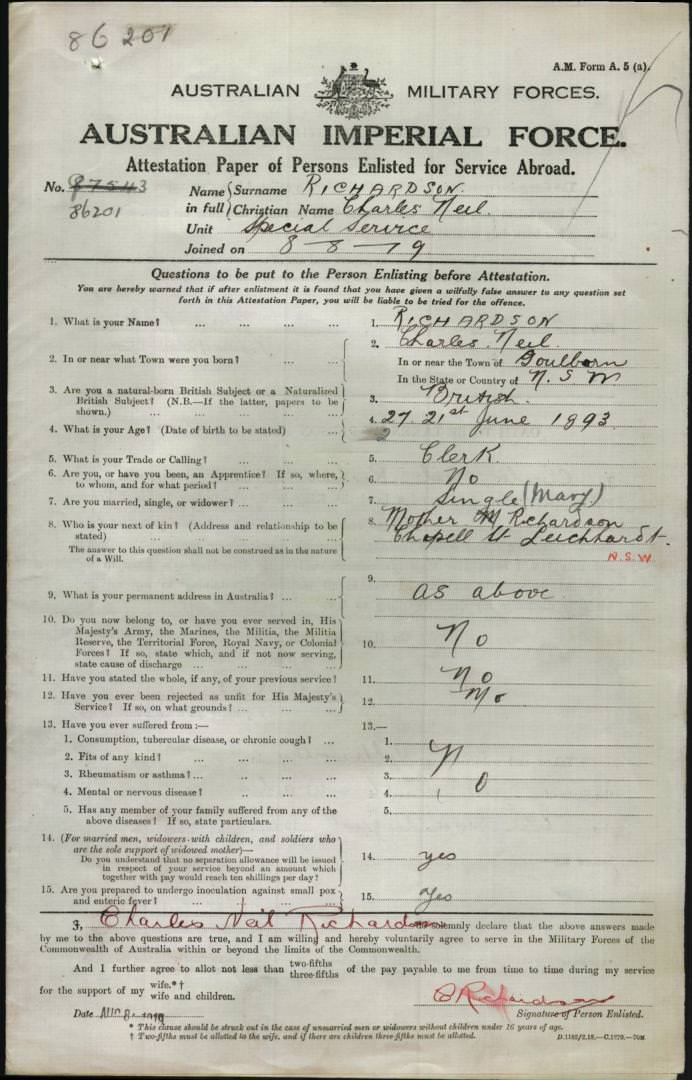 86201
A.M. Form A. 5 (a).
AUSTRALIAN MILITARY FORCES.
AUSTRALIAN IMPERIAL FORCE.
Attestation Paper of Persons Enlisted for Service Abroad.
No. 87543
86201
Name in full
Surname RICHARDSON.
Christian Name Charles Neil.
Unit Special Service
Joined on 8-8-19
Questions to be put to the Person Enlisting before Attestation.
You are hereby warned that if after enlistment it is found that you have given a wilfully false answer to any question set
forth in this Attestation Paper, you will be liable to be tried for the offence.
1. What is your Name? ... ... ... ...
1. RICHARDSON
Charles Neil.
2. In or near what Town were you born? ... ...
2. In or near the Town of Goulburn
In the State or Country of N.S.W
3. Are you a natural-born British Subject or a Naturalized
British Subject? (N.B.—If the latter, papers to be
shown.) ... ... ... ... ...
3. British.
4. What is your Age? (Date of birth to be stated) ...
4. 27. 21st June 1893
2
5. What is your Trade or Calling? ... ... ...
5. Clerk
6. Are you, or have you been, an Apprentice? If so, where,
to whom, and for what period? ... ... ...
6. No
7. Are you married, single, or widower? ... ... ...
7. Single (Mary)
8. Who is your next of kin? (Address and relationship to be
stated) ... ... ... ... ...
The answer to this question shall not be construed as in the nature
of a Will.
8. Mother M Richardson
Chapell St Leichhardt.
N.S.W.
9. What is your permanent address in Australia? ... ...
9. as above
10. Do you now belong to, or have you ever served in, His
Majesty's Army, the Marines, the Militia, the Militia
Reserve, the Territorial Force, Royal Navy, or Colonial
Forces? If so, state which, and if not now serving,
state cause of discharge ... ... ... ...
10. No
11. Have you stated the whole, if any, of your previous service?
11. No
12. Have you ever been rejected as unfit for His Majesty's
Service? If so, on what grounds? ... ... ...
12. No
13. Have you ever suffered from :—
13.—
1. Consumption, tubercular disease, or chronic cough? ...
1.
2. Fits of any kind? ... ... ... ...
2. N
3. Rheumatism or asthma? ... ... ... ...
3.
4. Mental or nervous disease? ... ... ...
4. o
5. Has any member of your family suffered from any of the
above diseases? If so, state particulars.
5.
14. (For married men, widowers with children, and soldiers who
are the sole support of widowed mother)—
Do you understand that no separation allowance will be issued
in respect of your service beyond an amount which
together with pay would reach ten shillings per day?
14. yes
15. Are you prepared to undergo inoculation against small pox
and enteric fever? ... ... ... ...
15. Yes
I, Charles Neil Richardson solemnly declare that the above answers made
by me to the above questions are true, and I am willing and hereby voluntarily agree to serve in the Military Forces of the
Commonwealth of Australia within or beyond the limits of the Commonwealth.
And I further agree to allot not less than two-fifths three-fifths of the pay payable to me from time to time during my service
for the support of my wife.*† wife and children.
C Richardson
Date AUG 8 - 1919
Signature of Person Enlisted.
* This clause should be struck out in the case of unmarried men or widowers without children under 16 years of age.
† Two-fifths must be allotted to the wife, and if there are children three-fifths must be allotted.
D.1182/2.18.—C.1279.—70M